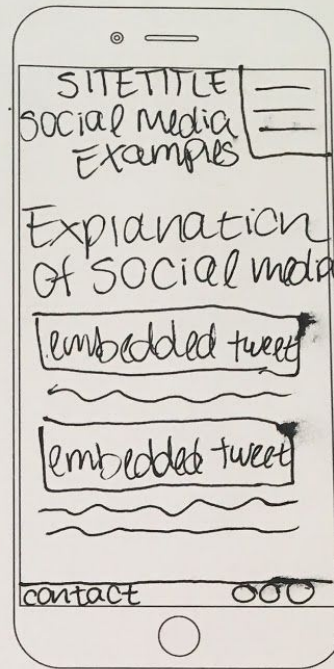 SITETITLE
social media
Examples
Explanation
of social media
embedded tweet
embedded tweet
contact